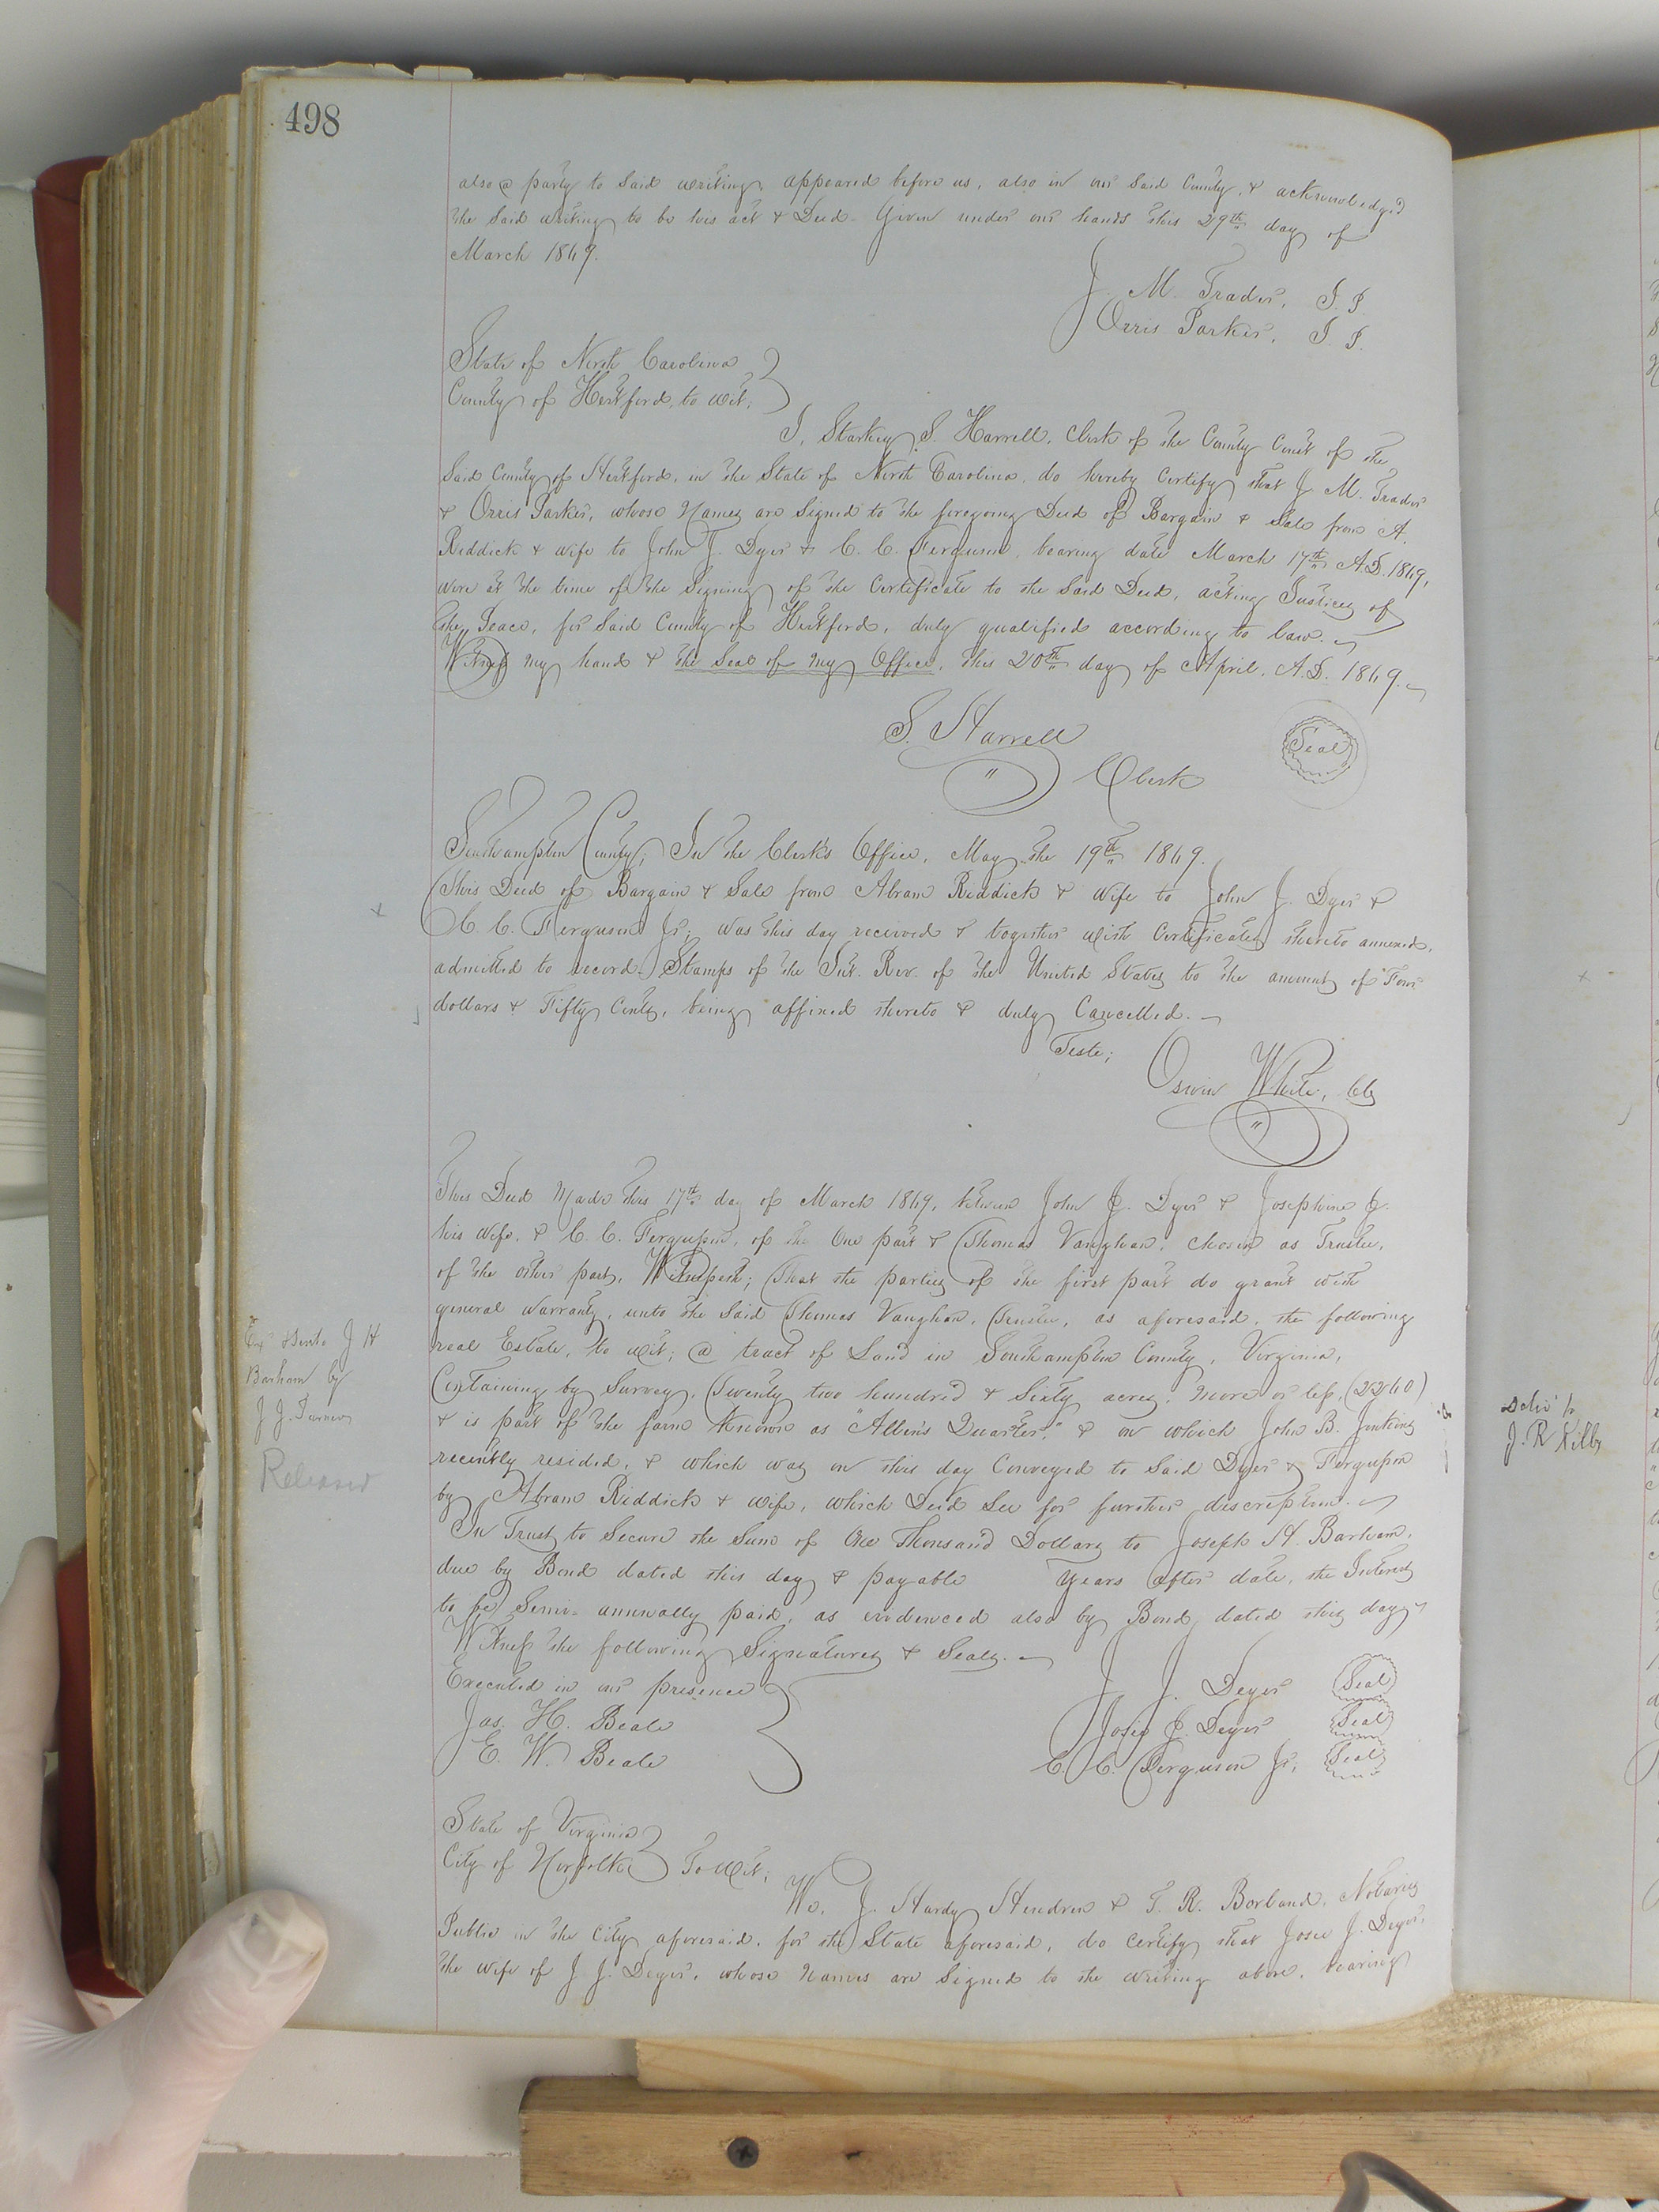 498
also @ party to Said writing, appeared before us, also in our Said County, & acknowledged
the Said writing to be his act & Deed. Given under our hands this 29th day of
March 1869.
J. M. Trader, J. P.
Orris Parker, J. P.
State of North Carolina
County of Hertford, to wit;
I, Starkey S. Harrell, Clerk of the County Court of the
Said County of Hertford, in the State of North Carolina, do hereby Certify that J. M. Trader
& Orris Parker, whose Names are Signed to the foregoing Deed of Bargain & Sale from A.
Riddick & wife to John J. Dyer & C. C. Ferguson, bearing date March 17th A.D. 1869,
were at the time of the Signing of the Certificate to the Said Deed, acting Justices of
the Peace, for Said County of Hertford, duly qualified according to law.
Witness my hand & the Seal of my Office, this 20th day of April, A.D. 1869.
S. Harrell
Clerk
Seal
Southampton County; In the Clerk's Office, May the 19th 1869.
This Deed of Bargain & Sale from Abram Riddick & wife to John J. Dyer &
C. C. Ferguson Jr; was this day received & together with Certificates thereto annexed,
admitted to record. Stamps of the Int. Rev. of the United States to the amount of Four
dollars & Fifty Cents, being affixed thereto & duly Cancelled.
Teste;
Oswin White, Clk
This Deed Made this 17th day of March 1869, between John J. Dyer & Josephine J.
his wife, & C. C. Ferguson, of the One part & Thomas Vaughan, chosen as Trustee,
of the other part, Witnesseth; That the parties of the first part do grant with
general warranty, unto the Said Thomas Vaughan, Trustee, as aforesaid, the following
real Estate, to wit; @ tract of Land in Southampton County, Virginia,
Containing by Survey, Twenty two hundred & Sixty acres, more or less, (2260)
& is part of the farm known as "Allen's Quarter," & on which John B. Jenkins
recently resided, & which was on this day Conveyed to Said Dyer & Ferguson
by Abram Riddick & wife, which Deed See for further discription.
In Trust to Secure the Sum of One Thousand Dollars to Joseph H. Barham,
due by Bond dated this day & payable years after date, the Interest
to be Semi-annually paid, as evidenced also by Bond dated this day
Witness the following Signatures & Seals.
Executed in our presence
Jas. H. Beale
E. W. Beale
J. J. Deyer Seal
Josie J. Deyer Seal
C. C. Ferguson Jr; Seal
J H
Barham by
J J. Turner
Released
State of Virginia
City of Norfolk To wit;
We, J. Hardy Hendren & T. R. Borland, Notaries
Public in the City aforesaid, for the State aforesaid, do certify that Josie J. Deyer,
the wife of J J. Deyer, whose names are Signed to the writing above, bearing
J. R Kilby